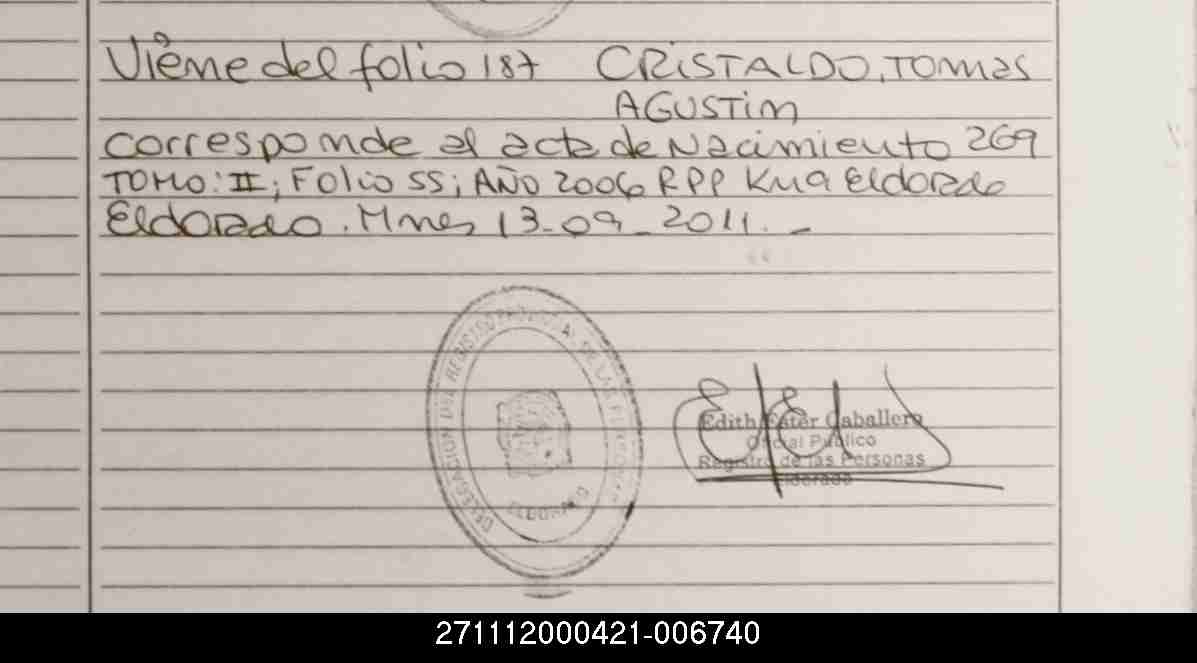 Viene del folio 187 CRISTALDO, TOMAS
AGUSTIN
corresponde al acta de Nacimiento 269
TOMO: II; Folio 55; AÑO 2006 RPP Km9 Eldorado
Eldorado. Mnes 13-09-2011.-
DELEGACION DEL REGISTRO PROVINCIAL DE LAS PERSONAS
ELDORADO
Edith Ester Caballero
Oficial Público
Registro de las Personas
Eldorado
271112000421-006740